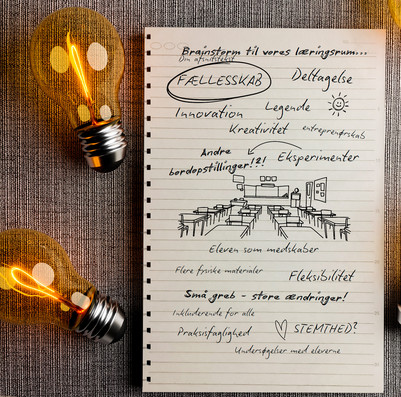 Brainstorm til vores læringsrum...
FÆLLESSKAB
Deltagelse
Innovation
Legende
Kreativitet
entreprenørskab
Andre
bordopstillinger!?!
Eksperimenter
Eleven som medskaber
Flere fysiske materialer
Fleksibilitet
Små greb - store ændringer!
Inkluderende for alle
Praksisfaglighed
STEMTHED?
Undersøgelser med eleverne